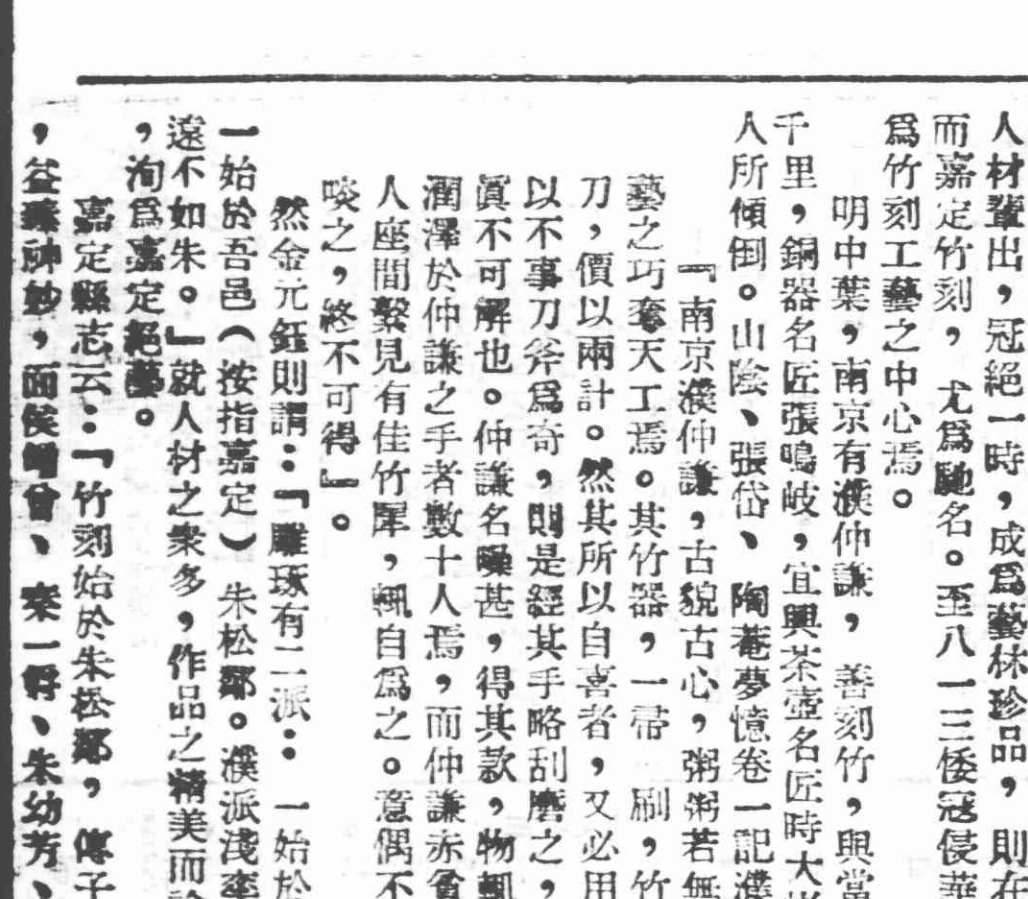 人材輩出，冠絕一時，成爲藝林珍品，則在
而嘉定竹刻，尤爲馳名。至八一三倭冦侵華
爲竹刻工藝之中心焉。
明中葉，南京有濮仲謙，善刻竹，與當
千里，銅器名匠張鳴岐，宜興茶壺名匠時大
人所傾倒。山陰、張岱、陶菴夢憶卷一記濮
『南京濮仲謙，古貌古心，粥粥若無
藝之巧奪天工焉。其竹器，一帚一刷，竹
刀，價以兩計。然其所以自喜者，又必用
以不事刀斧爲奇，則是經其手略刮磨之，
眞不可解也。仲謙名噪甚，得其款，物輒
潤澤於仲謙之手者數十人焉，而仲謙赤貧
人座間繫見有佳竹犀，輒自爲之。意偶不
啖之，終不可得』。
然金元鈺則謂：『雕琢有二派：一始於
一始於吾邑（按指嘉定）朱松鄰。濮派淺率
遠不如朱。』就人材之衆多，作品之精美而論
，洵爲嘉定絕藝。
嘉定縣志云：『竹刻始於朱松鄰，傳子
，益臻神妙，面侯崤曾、秦一爵、朱幼芳、